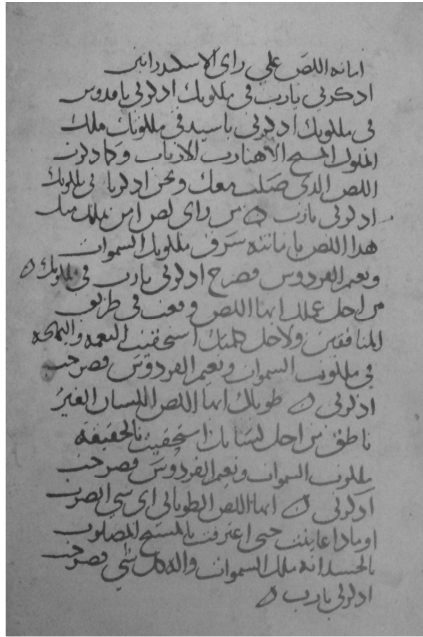 امانه اللص علي راي الاسكندرانيين
ادكرني يارب في ملكوتك ادكرني ياقدوس
في ملكوتك ادكرني ياسيد في ملكوتك ملك
الملوك المسيح الاهنا رب الارباب وكما دكرت
اللص الدي صلب معك ونحن ادكرنا في ملكوتك
ادكرني يارب من راي لص امن بملك مثل
هدا اللص بامانته سرق ملكوت السموات
ونعيم الفردوس فصرخ ادكرني يارب في ملكوتك
من اجل عملك ايها اللص وقعت في طريق
المنافقين ولاجل كلمتك استحقيت النعمه
في ملكوت السموات ونعيم الفردوس فصرخت
ادكرني طوباك ايها اللص اللسان الغير
ناطق من اجل لسانك استحقيت بالحقيقه
ملكوت السموات ونعيم الفردوس فصرخت
ادكرني ايها اللص الطوباني اي شي ابصرت
او مادا عاينت حتي اعترفت بالمسيح المصلوب
بالجسد انه ملك السموات واله كل شي فصرخت
ادكرني يارب